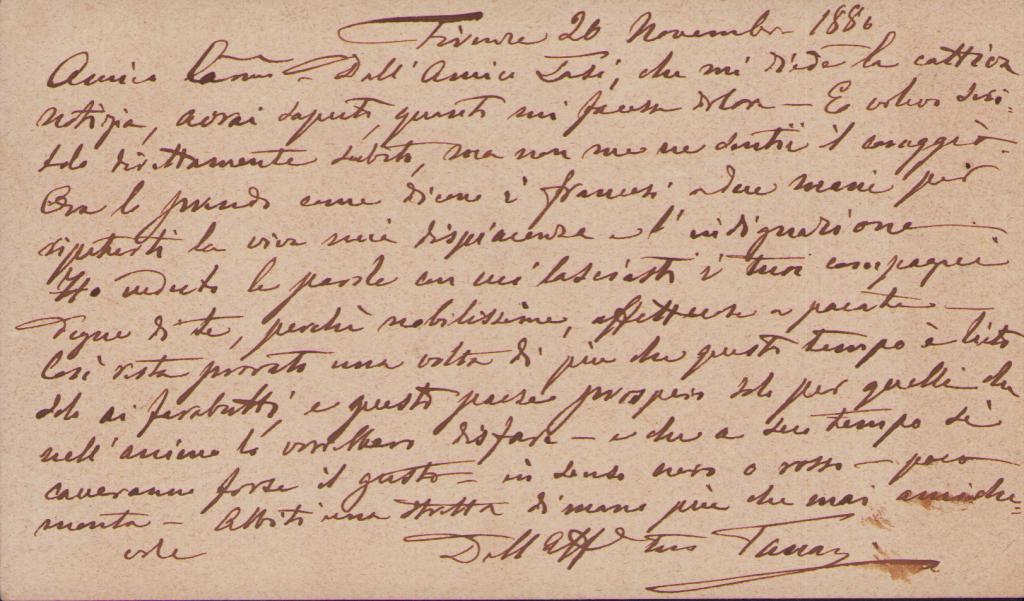 Firenze 26 Novembre 1886
Amico – Dall'Amico Tasi, che mi diede la cattiva
notizia, avrai saputo, quanto mi facesse dolore – E volevo scri-
direttamente subito, ma non me ne sentii il coraggio.
Ora la prendo come dicono i francesi a due mani per
ripeterti la viva mia dispiacenza e l'indignazione
Ho veduto le parole con cui lasciasti i tuoi compagni
degne di te, perchè nobilissime, affettuose e pacate –
Così resta provato una volta di più che questo tempo è lieto
solo ai farabutti, e questo paese prospero solo per quelli che
nell'animo lo vorrebbero disfare – e che a suo tempo si
caveranno forse il gusto – in senso nero o rosso – poco
monta – Abbiti una stretta di mano più che mai amiche-
vole
Dall'Aff.º tuo